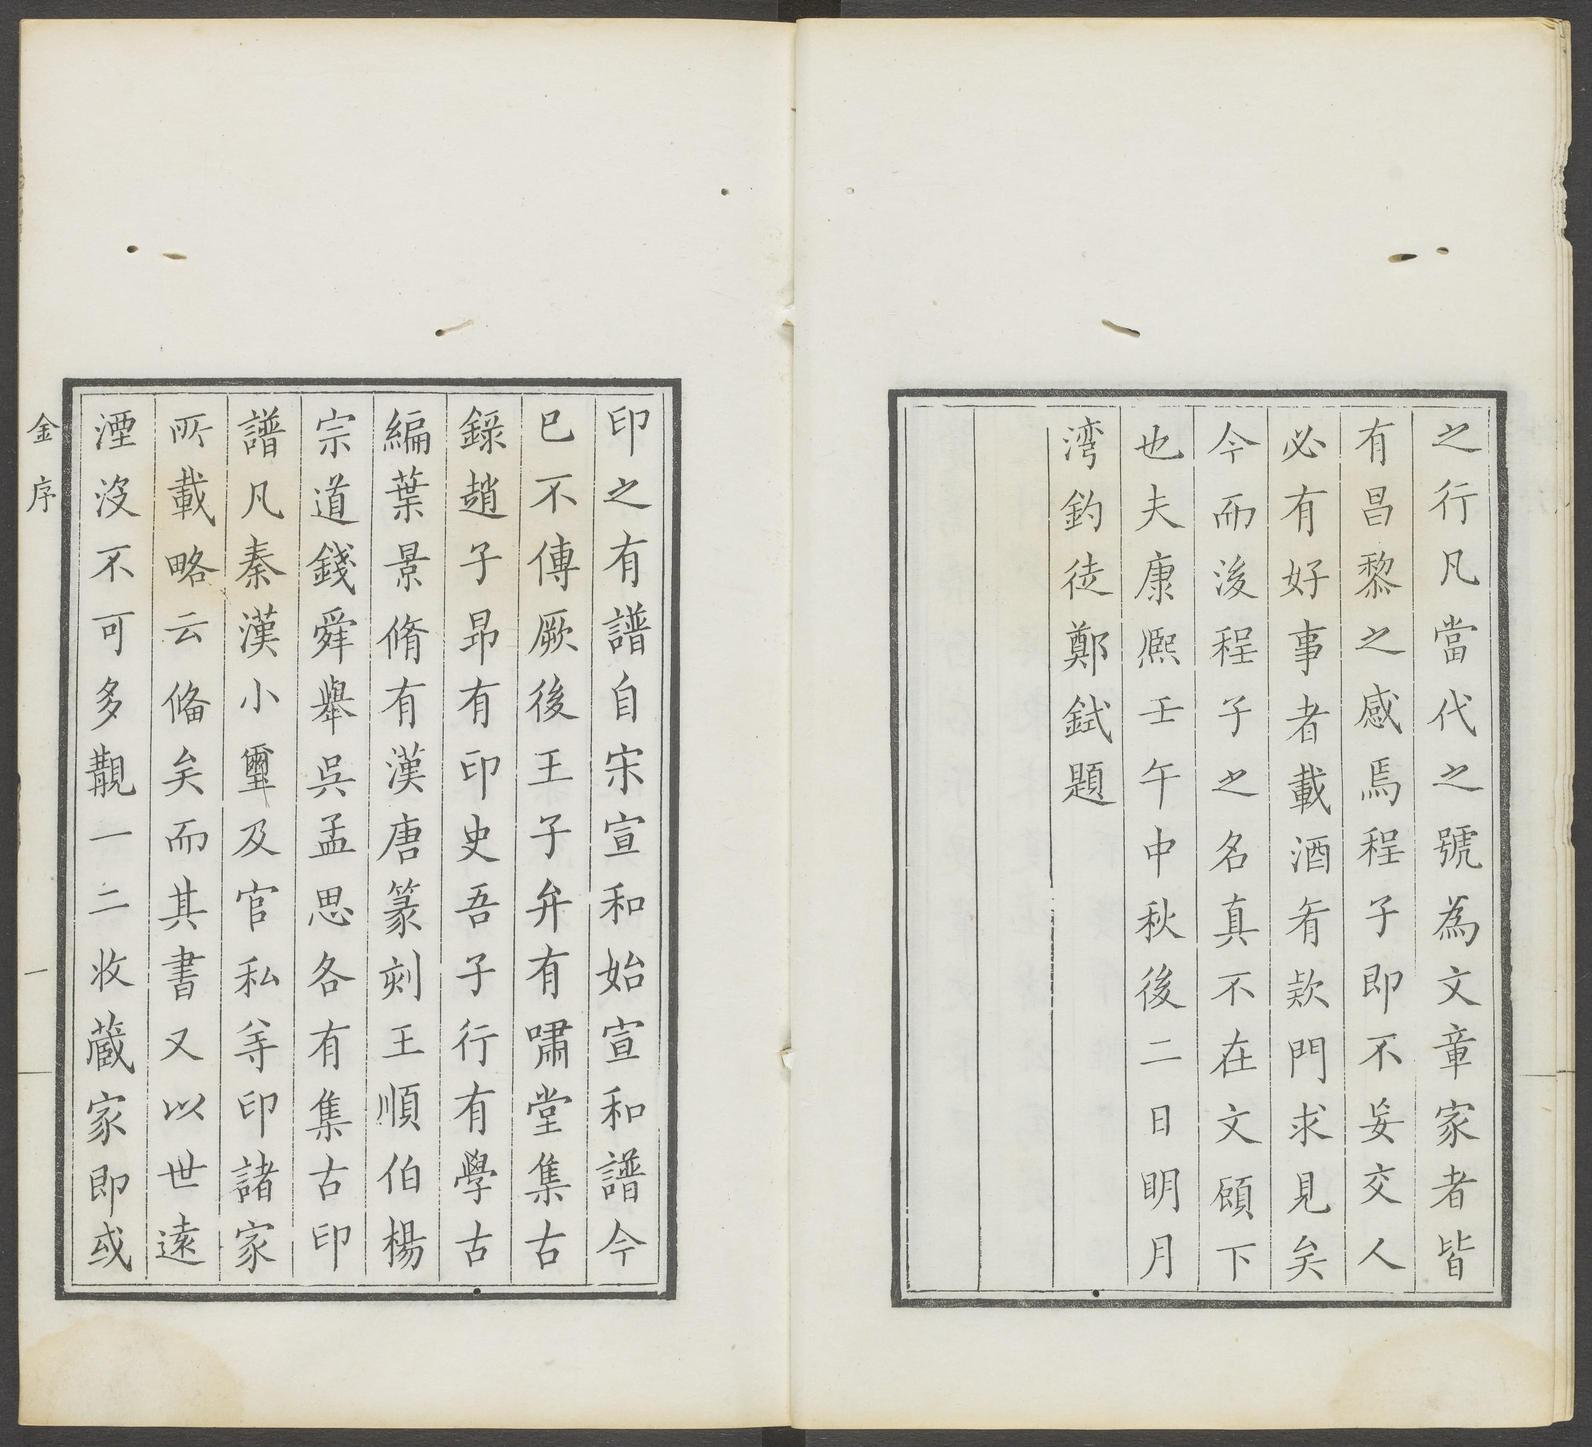 之行凡當代之號為文章家者皆
有昌黎之感焉程子即不妄交人
必有好事者載酒肴款門求見矣
今而後程子之名真不在文頠下
也夫康熈壬午中秋後二日明月
湾釣徒鄭鉽題
印之有譜自宋宣和始宣和譜今
已不傳厥後王子弁有嘯堂集古
錄趙子昂有印史吾子行有學古
編葉景脩有漢唐篆刻王順伯楊
宗道錢舜舉呉孟思各有集古印
譜凡秦漢小璽及官私等印諸家
所載略云俻矣而其書又以世遠
湮沒不可多覯一二收蔵家即或
金序
一